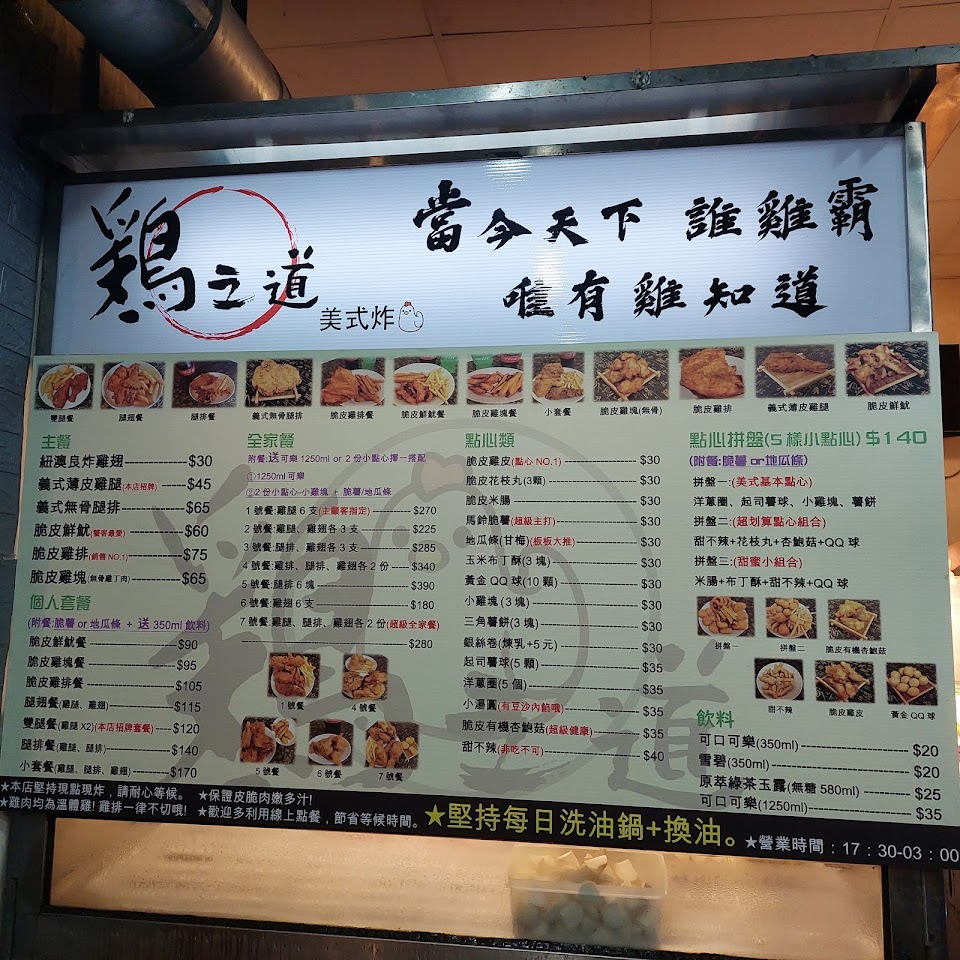 鷄之道
美式炸
當今天下 誰雞霸
唯有雞知道
雙腿餐
腿翅餐
腿排餐
義式無骨腿排
脆皮雞排餐
脆皮鮮魷餐
脆皮雞塊餐
小套餐
脆皮雞塊(無骨)
脆皮雞排
義式薄皮雞腿
脆皮鮮魷
主餐
紐澳良炸雞翅 $30
義式薄皮雞腿(本店招牌) $45
義式無骨腿排 $65
脆皮鮮魷(饕客最愛) $60
脆皮雞排(銷售NO.1) $75
脆皮雞塊(無骨雞丁肉) $65
個人套餐
(附餐:脆薯 or 地瓜條 + 送 350ml 飲料)
脆皮鮮魷餐 $90
脆皮雞塊餐 $95
脆皮雞排餐 $105
腿翅餐(雞腿、雞翅) $115
雙腿餐(雞腿X2)(本店招牌套餐) $120
腿排餐(雞腿、腿排) $140
小套餐(雞腿、腿排、雞翅) $170
全家餐
附餐:送可樂 1250ml or 2 份小點心擇一搭配
①1250ml 可樂
②2 份小點心-小雞塊 + 脆薯/地瓜條
1 號餐:雞腿 6 支(主顧客指定) $270
2 號餐:雞腿、雞翅各 3 支 $225
3 號餐:腿排、雞翅各 3 支 $285
4 號餐:雞排、腿排、雞翅各 2 份 $340
5 號餐:腿排 6 塊 $390
6 號餐:雞翅 6 支 $180
7 號餐:雞腿、腿排、雞翅各 2 份(超級全家餐)
$280
1 號餐
4 號餐
5 號餐
6 號餐
7 號餐
點心類
脆皮雞皮(點心 NO.1) $30
脆皮花枝丸(3顆) $30
脆皮米腸 $30
馬鈴脆薯(超級主打) $30
地瓜條(甘梅)(板板大推) $30
玉米布丁酥(3 塊) $30
黃金 QQ 球(10 顆) $30
小雞塊 (3 塊) $30
三角薯餅(3 塊) $30
銀絲卷(煉乳+5 元) $30
起司薯球(5 顆) $35
洋蔥圈(5 個) $35
小湯圓(有豆沙內餡哦) $35
脆皮有機杏鮑菇(超級健康) $35
甜不辣(非吃不可) $40
點心拼盤(5 樣小點心) $140
(附餐:脆薯 or 地瓜條)
拼盤一:(美式基本點心)
洋蔥圈、起司薯球、小雞塊、薯餅
拼盤二:(超划算點心組合)
甜不辣+花枝丸+杏鮑菇+QQ 球
拼盤三:(甜蜜小組合)
米腸+布丁酥+甜不辣+QQ 球
拼盤一
拼盤二
脆皮有機杏鮑菇
甜不辣
脆皮雞皮
黃金 QQ 球
飲料
可口可樂(350ml) $20
雪碧(350ml) $20
原萃綠茶玉露(無糖 580ml) $25
可口可樂(1250ml) $35
★本店堅持現點現炸，請耐心等候。 ★保證皮脆肉嫩多汁!
★雞肉均為溫體雞!雞排一律不切哦! ★歡迎多利用線上點餐，節省等候時間。 ★堅持每日洗油鍋+換油。 ★營業時間：17：30-03：00